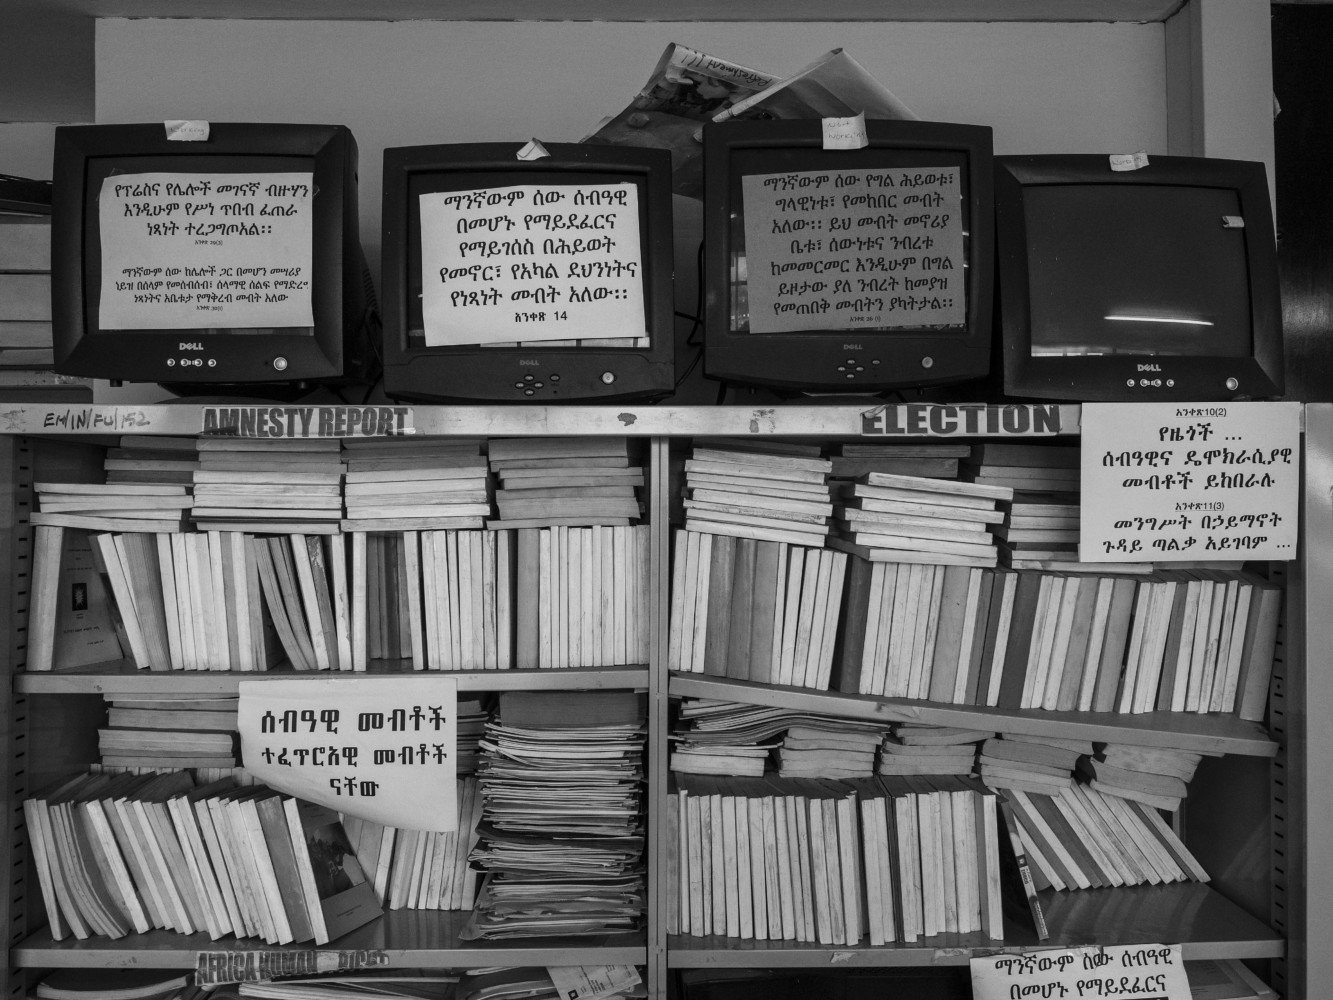 የፕሬስና የሌሎች መገናኛ ብዙሃን
እንዲሁም የሥነ ጥበብ ፈጠራ
ነጻነት ተረጋግጦአል፡፡
ማንኛውም ሰው ከሌሎች ጋር በመሆን መሣሪያ
ሳይዝ በሰላም የመሰብሰብ፣ ሰላማዊ ሰልፍ የማድረግ
ነጻነትና አቤቱታ የማቅረብ መብት አለው
DELL
ማንኛውም ሰው ሰብዓዊ
በመሆኑ የማይደፈርና
የማይገሰስ በሕይወት
የመኖር፣ የአካል ደህንነትና
የነጻነት መብት አለው፡፡
አንቀጽ 14
DELL
ማንኛውም ሰው የግል ሕይወቱ፣
ግላዊነቱ፣ የመከበር መብት
አለው፡፡ ይህ መብት መኖሪያ
ቤቱ፣ ሰውነቱና ንብረቱ
ከመመርመር እንዲሁም በግል
ይዞታው ያለ ንብረት ከመያዝ
የመጠበቅ መብትን ያካትታል፡፡
DELL
DELL
EM/IN/FU/152
AMNESTY REPORT
ELECTION
አንቀጽ10(2)
የዜጎች ...
ሰብዓዊና ዴሞክራሲያዊ
መብቶች ይከበራሉ
አንቀጽ11(3)
መንግሥት በኃይማኖት
ጉዳይ ጣልቃ አይገባም ...
ሰብዓዊ መብቶች
ተፈጥሮአዊ መብቶች
ናቸው
AFRICA HUMAN
ማንኛውም ሰው ሰብዓዊ
በመሆኑ የማይደፈርና